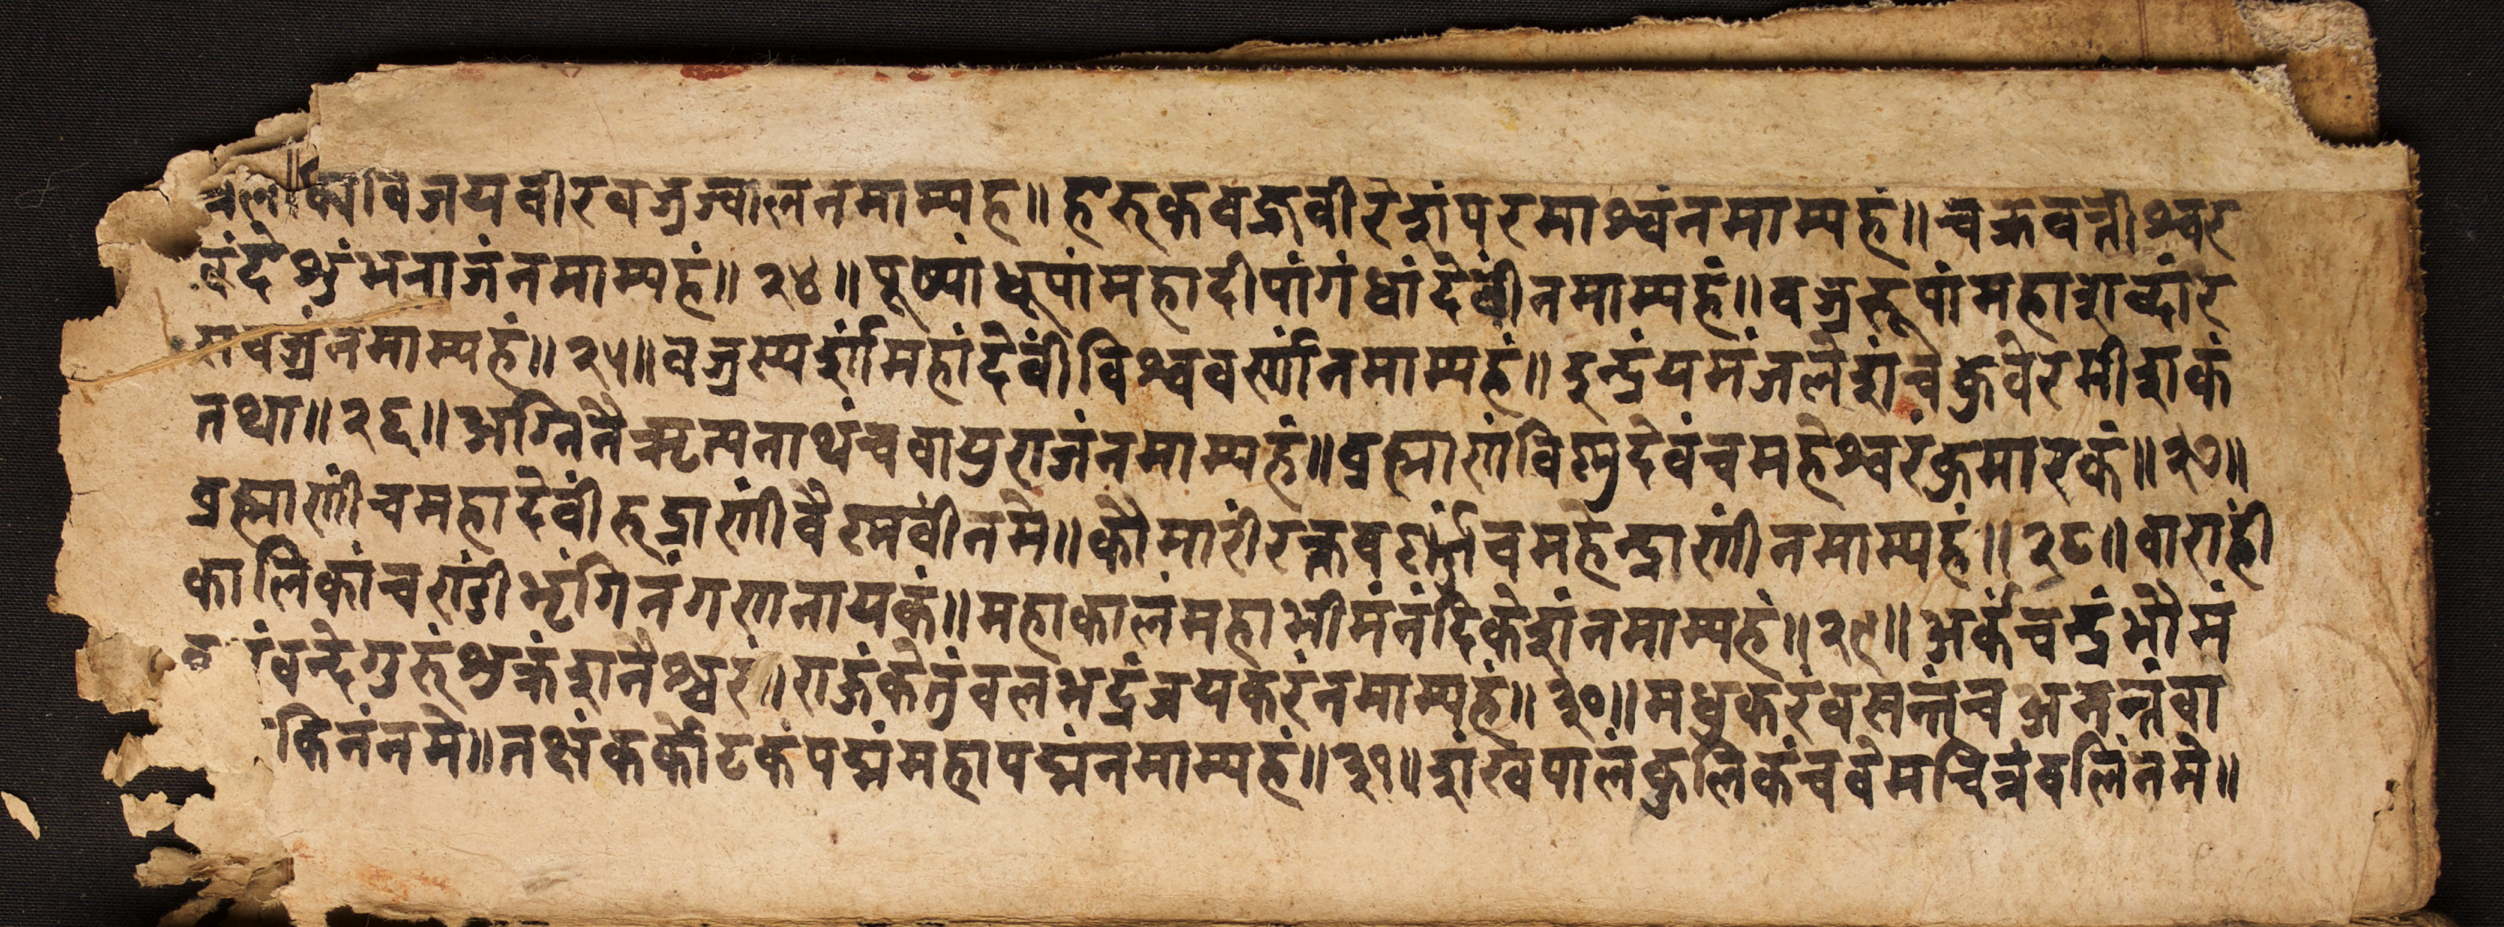 त्रैलोक्यविजयवीरवज्रज्वालनमाम्यह॥ हेरुकवज्रवीरेशंपरमाश्वंनमाम्यहं॥ चक्रवर्त्तीश्वर
वंदेशुंभराजंनमाम्यहं॥ २४॥ पूष्पांधूपांमहादीपांगंधांदेवींनमाम्यहं॥ वज्ररूपांमहाशब्दांर
सवज्रंनमाम्यहं॥ २५॥ वज्रस्यर्शांमहांदेवींविश्ववर्णांनमाम्यहं॥ इन्द्रंयमंजलेशंचकुवेरमीशकं
तथा॥ २६॥ अग्निनैऋत्यनाथंचवायुराजंनमाम्यहं॥ व्रह्माणंविष्णुदेवंचमहेश्वरंकुमारकं॥ २७॥
व्रह्माणींचमहादेवींरुद्राणींवैष्णवींनमे॥ कौमारींरक्तवर्णांचमहेन्द्राणींनमाम्यहं॥ २८॥ वाराहीं
कालिकांचरांडीभृंगिनंगणनायकं॥ महाकालंमहाभीमंनंदिकेशंनमाम्यहं॥ २९॥ अर्कंचन्द्रंभौमं
वंन्देगुरुंशुक्रंशनैश्चरं॥ राज्ञंकेतुंवलभद्रंजयकरंनमाम्यहं॥ ३०॥ मधुकरंवसन्तंचअनन्तंवा
किनंनमे॥ तक्षंकर्कोटकंपद्मंमहापद्मंनमाम्यहं॥ ३१॥ शंखपालंकुलिकंचवेमचित्रंवलिंनमे॥